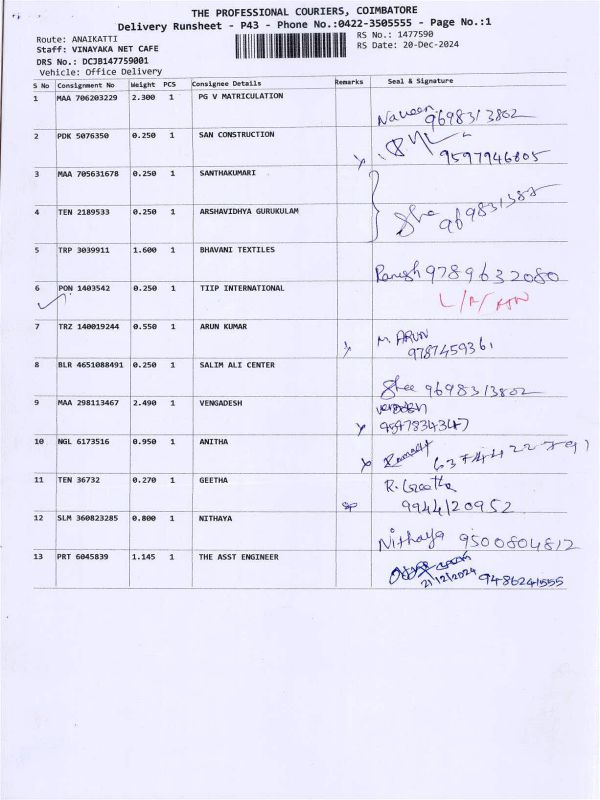 THE PROFESSIONAL COURIERS, COIMBATORE
Delivery Runsheet - P43 - Phone No.:0422-3505555 - Page No.:1
Route: ANAIKATTI RS No.: 1477590
Staff: VINAYAKA NET CAFE RS Date: 20-Dec-2024
DRS No.: DCJB147759001
Vehicle: Office Delivery
S No Consignment No Weight PCS Consignee Details Remarks Seal & Signature
1 MAA 706203229 2.300 1 PG V MATRICULATION Naveen 9698313802
2 PDK 5076350 0.250 1 SAN CONSTRUCTION 9597946605
3 MAA 705631678 0.250 1 SANTHAKUMARI
4 TEN 2189533 0.250 1 ARSHAVIDHYA GURUKULAM
5 TRP 3039911 1.600 1 BHAVANI TEXTILES 9789632080
6 PON 1403542 0.250 1 TIIP INTERNATIONAL
7 TRZ 140019244 0.550 1 ARUN KUMAR M. ARUN
9787459361
8 BLR 4651088491 0.250 1 SALIM ALI CENTER 9698313802
9 MAA 298113467 2.490 1 VENGADESH
10 NGL 6173516 0.950 1 ANITHA
11 TEN 36732 0.270 1 GEETHA R. Geetha
9944120952
12 SLM 360823285 0.800 1 NITHAYA Nithaya 9500804812
13 PRT 6045839 1.145 1 THE ASST ENGINEER
21/12/2024 9486241555